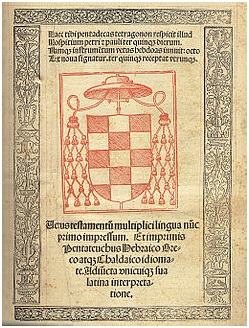 Hec tibi pentadecas tetragonon respicit illud
Hospitium petri ⁊ pauli ter quinqꝫ dierum.
Namqꝫ instrumētum vetus hebdoas innuit: octo
Lex noua signatur. ter quinqꝫ receptat vtrunqꝫ.
Uetus testamentū multiplici lingua nūc
primo impressum. Et imprimis
Pentateuchus Hebraico Gre
co atqꝫ Chaldaico idioma
te. Adiūcta vnicuiqꝫ sua
latina interpreta
tione.